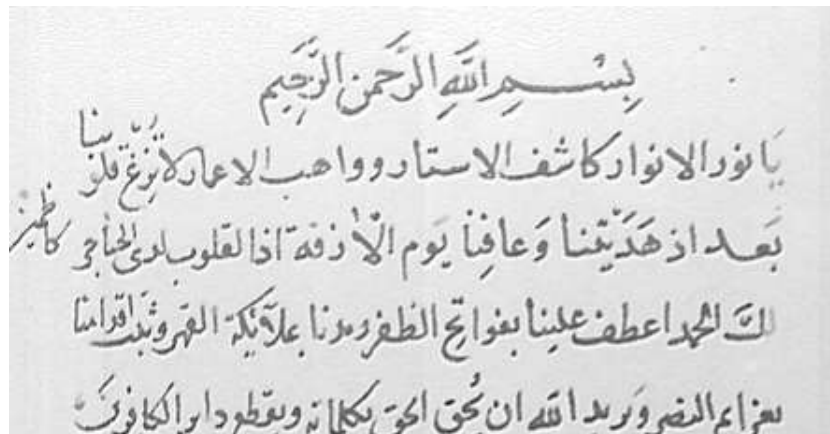 بِسْمِ اللَّهِ الرَّحْمَنِ الرَّحِيمِ
يا نور الانوار كاشف الاستار وواهب الاعمار ربنا لا تزغ قلوبنا
بَعد اذ هَدَيْتَنا وَعافِنا يَوم الْاٰزفة اذا لقلوب لدى الحناجر كاظمين
لكَ الحمد اعطف علينا بفواتح الظفر ومدنا بملآئكة القهر وثبت اقدامنا
بعزايم النصر ويريد الله ان يُحق الحق بكلماته ويقطع دابر الكافرين